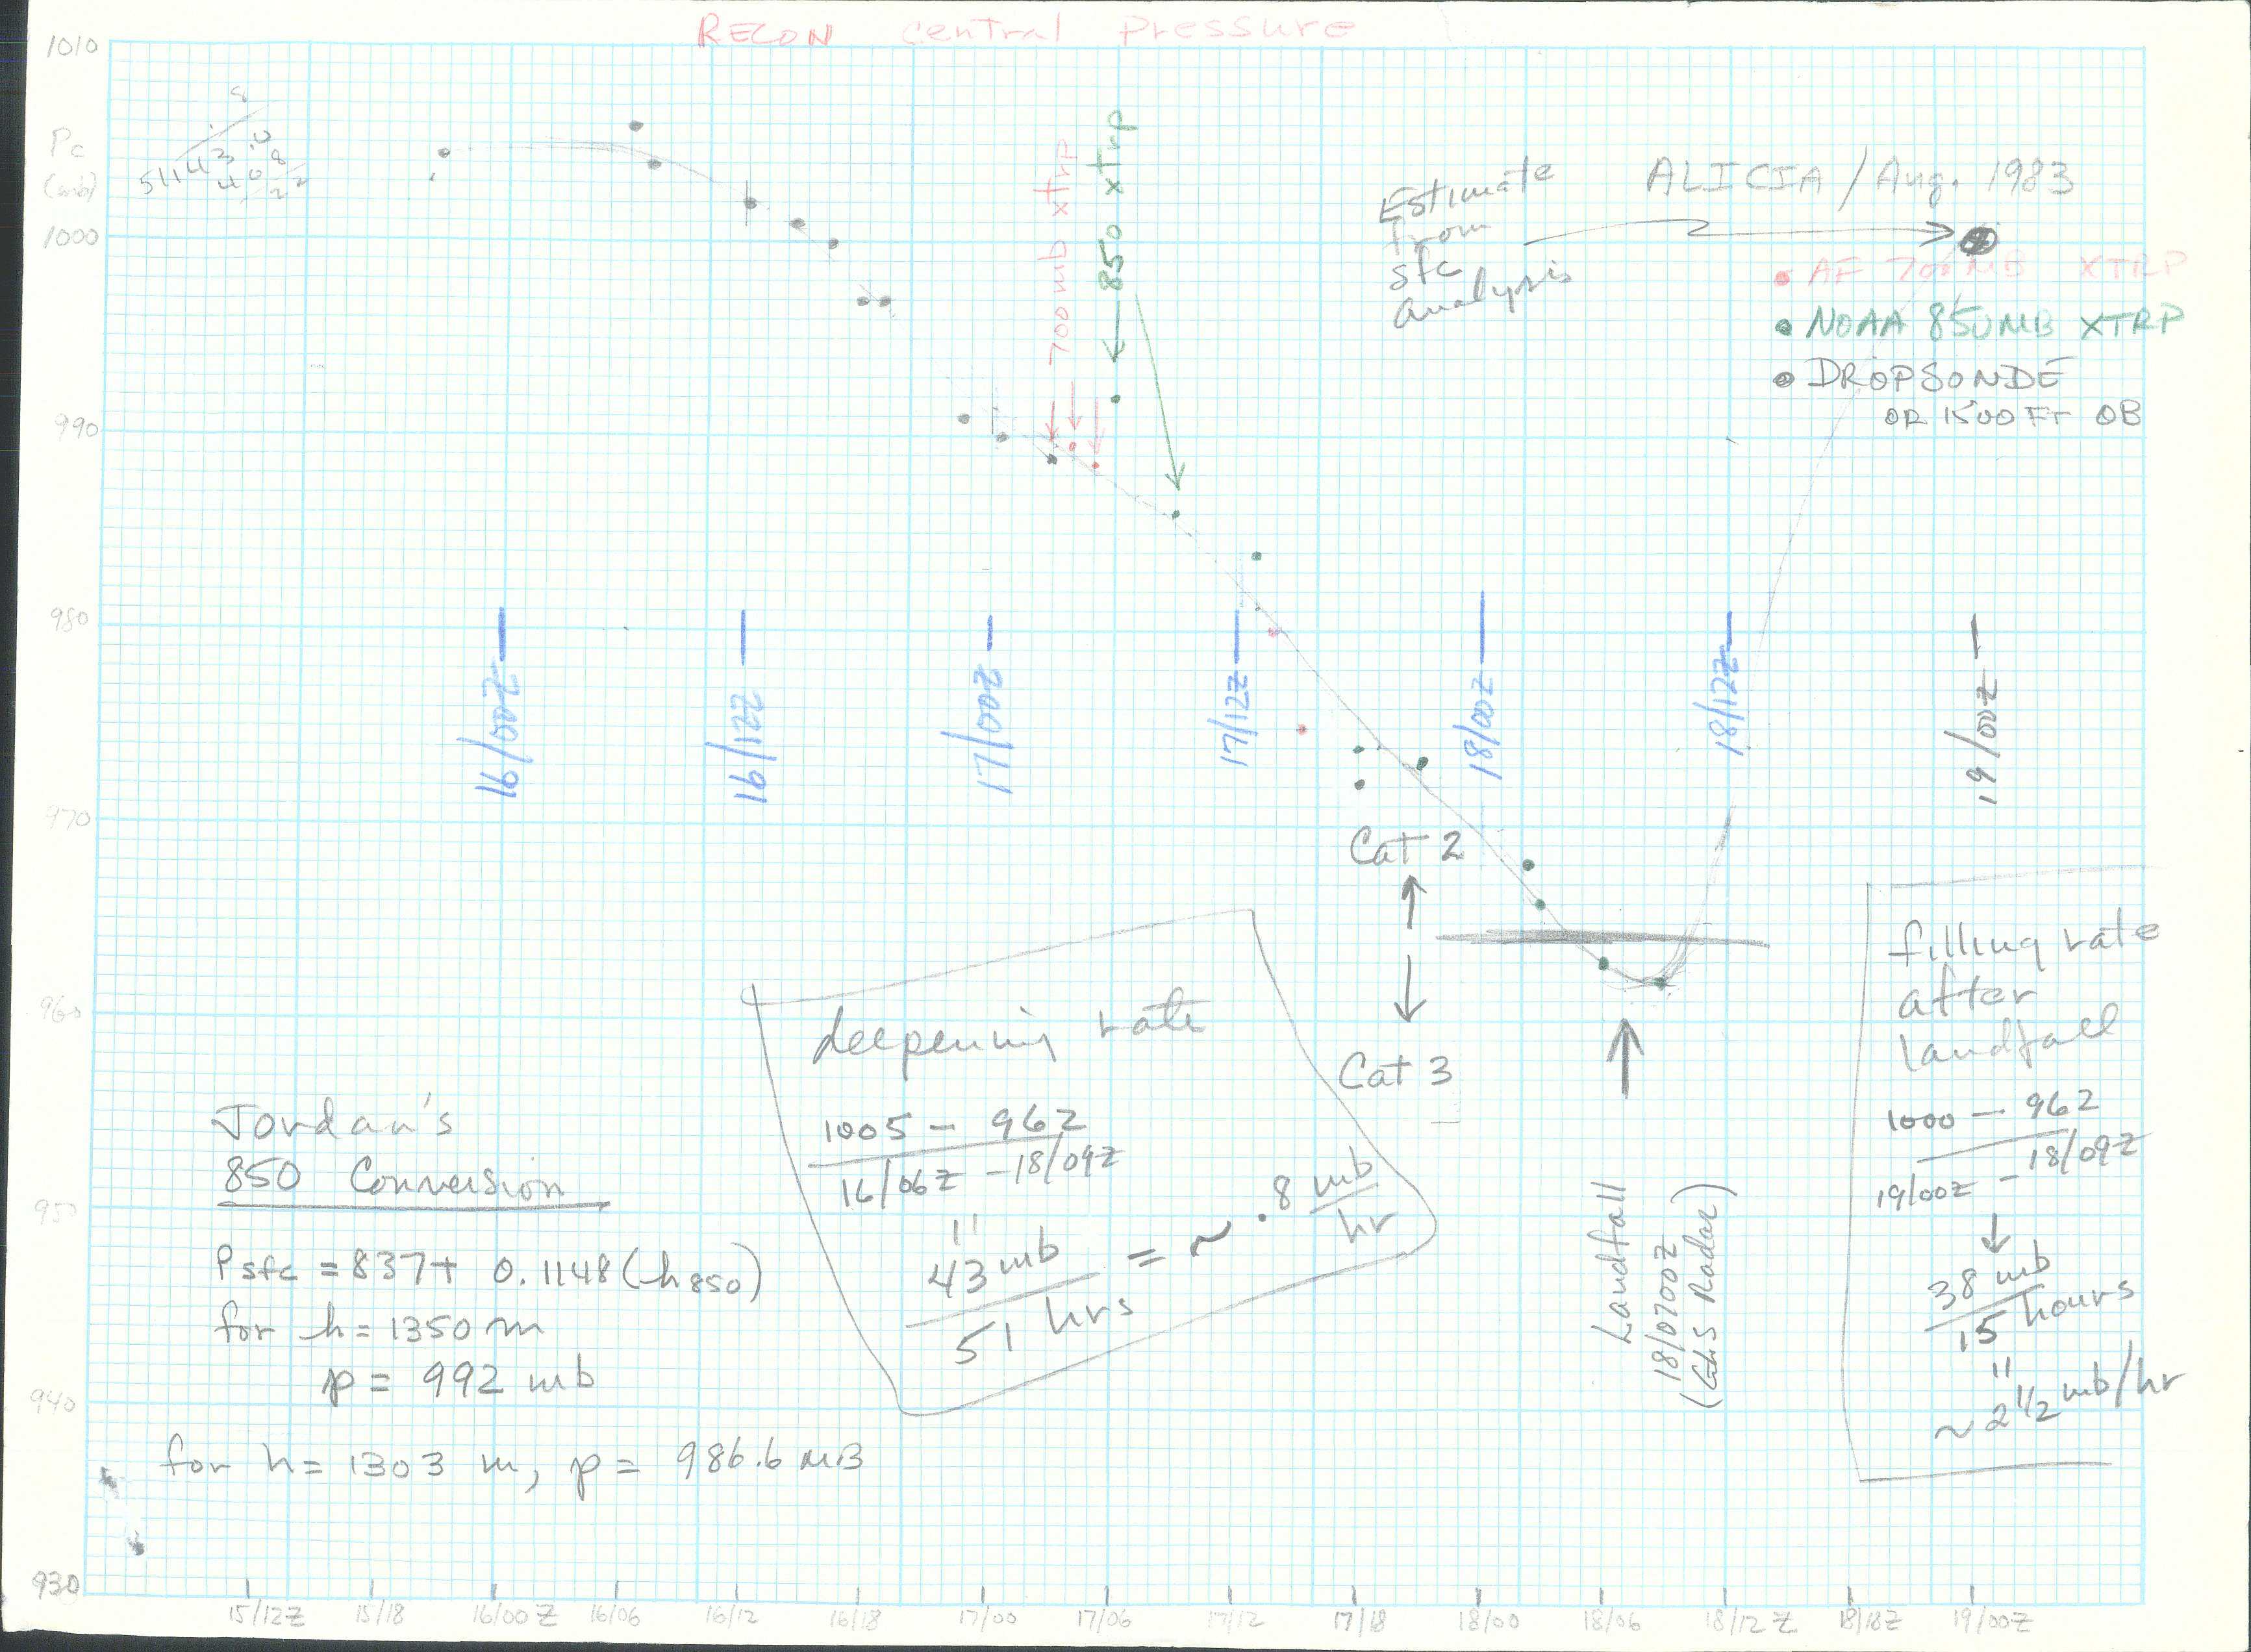 RECON central pressure
1010
Pc
(mb)
1000
990
980
970
960
950
940
930
700mb xtrp
850 xtrp
Estimate
from
sfc
analysis
ALICIA / Aug. 1983
• AF 700MB XTRP
• NOAA 850MB XTRP
• DROPSONDE
OR 1500 FT OB
16/00Z
16/12Z
17/00Z
17/12Z
18/00Z
18/12Z
19/00Z
Cat 2
Cat 3
deepening rate
1005 - 962
16/06Z - 18/09Z
"
43 mb
51 hrs
= ~ .8 mb
hr
Jordan's
850 Conversion
Psfc = 837 + 0.1148 (h850)
for h = 1350 m
p = 992 mb
for h = 1303 m, p = 986.6 MB
Landfall
18/0700Z
(GLS Radar)
filling rate
after
landfall
1000 - 962
19/00Z - 18/09Z
38 mb
15 hours
"
~ 2 1/2 mb/hr
15/12Z
15/18
16/00Z
16/06
16/12
16/18
17/00
17/06
17/12
17/18
18/00
18/06
18/12Z
18/18Z
19/00Z